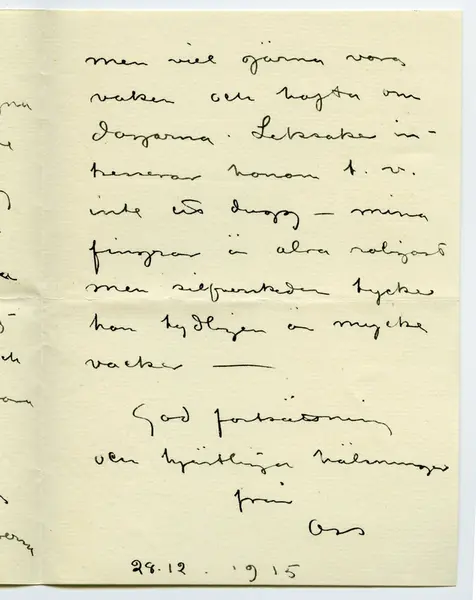 men vill gärna vara
vaken och hojta om
dagarna. Leksaker in-
tresserar honom t. v.
inte ett dugg — mina
fingrar är allra roligast
men silfverskeden tycker
han tydligen är mycke
vacker —
God fortsättning
och hjärtliga hälsningar
från
Oss
28.12. 1915